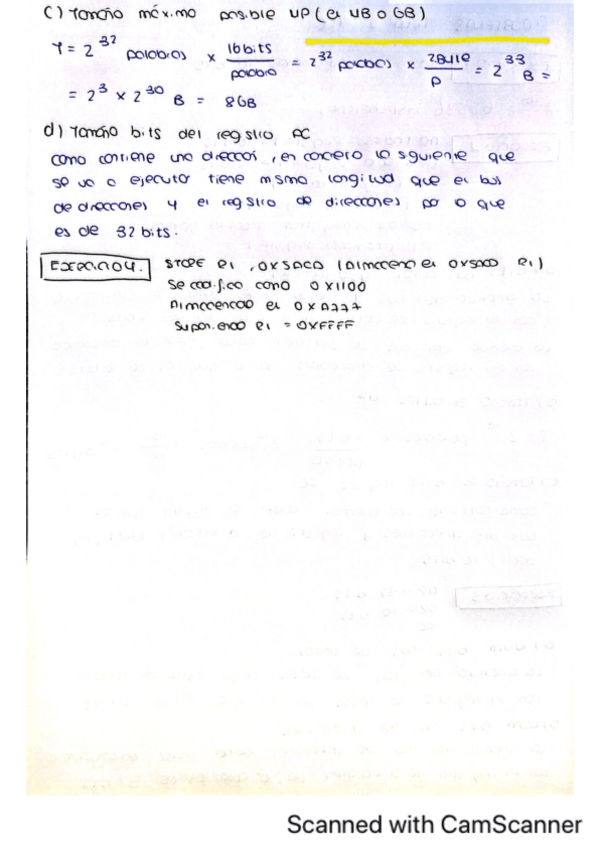 c) Tamaño máximo posible MP (en MB o GB)
T = 2^32 palabras x 16 bits / palabra = 2^32 palabras x 2 Byte / P = 2^33 B =
= 2^3 x 2^30 B = 8 GB
d) Tamaño bits del registro PC
como contiene una dirección, en concreto la siguiente que
se va a ejecutar tiene misma longitud que el bus
de direcciones y el registro de direcciones por lo que
es de 32 bits.
Ejercicio 4. STORE R1, 0x5ACD (Almacena en 0x5ACD R1)
Se codifica como 0x1100
Almacenado en 0xA777
Suponiendo R1 = 0xFFFF
Scanned with CamScanner